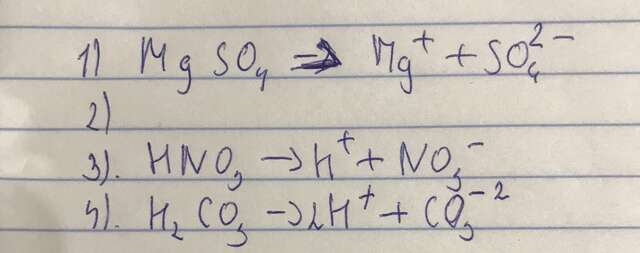 1) MgSO₄ → Mg⁺ + SO₄²⁻
2)
3). HNO₃ → H⁺ + NO₃⁻
4). H₂CO₃ → 2H⁺ + CO₃⁻²